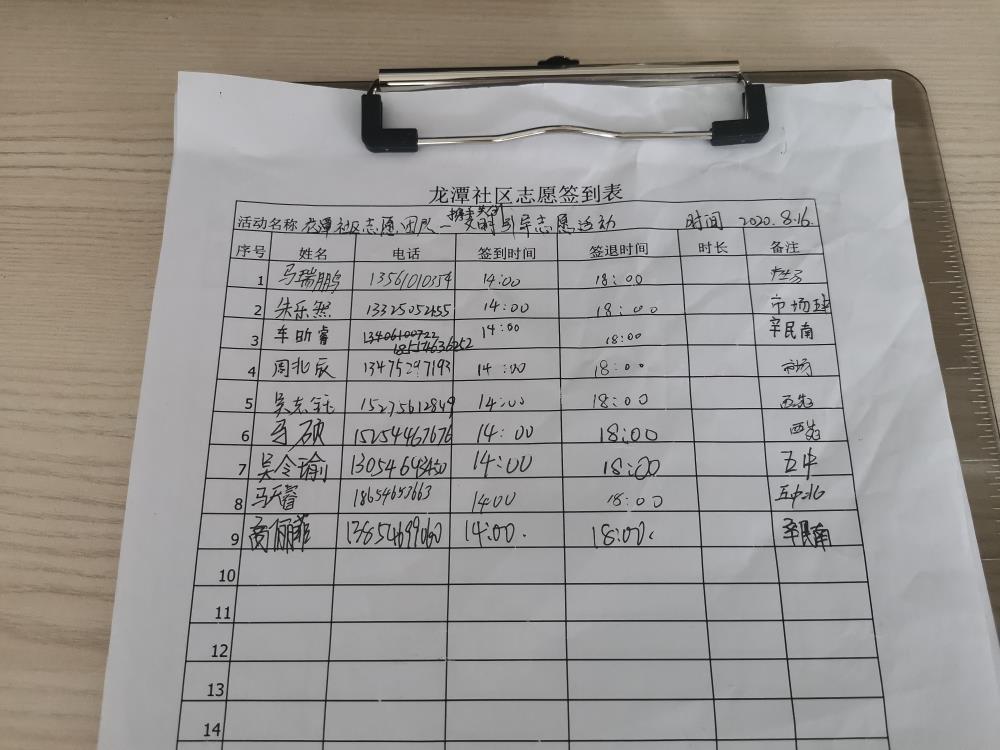 龙潭社区志愿签到表
活动名称 龙潭社区志愿团队—文明引导志愿活动 时间 2020.8.16.
序号 姓名 电话 签到时间 签退时间 时长 备注
1 马瑞鹏 13561010354 14:00 18:00
2 朱乐然 13325052455 14:00 18:00 市场
3 车昕睿 13406100722 18:00 辛民南
18574636252 14:00
4 周北辰 13475297193 14:00 18:00 市场
5 吴志钰 15275612849 14:00 18:00
6 马硕 15254467676 14:00 18:00
7 吴令瑜 14:00 18:00 五中
8 马天睿 18654653663 14:00 18:00 五中北
9 商俪菲 13854699060 14:00. 18:00. 辛民南
10
11
12
13
14